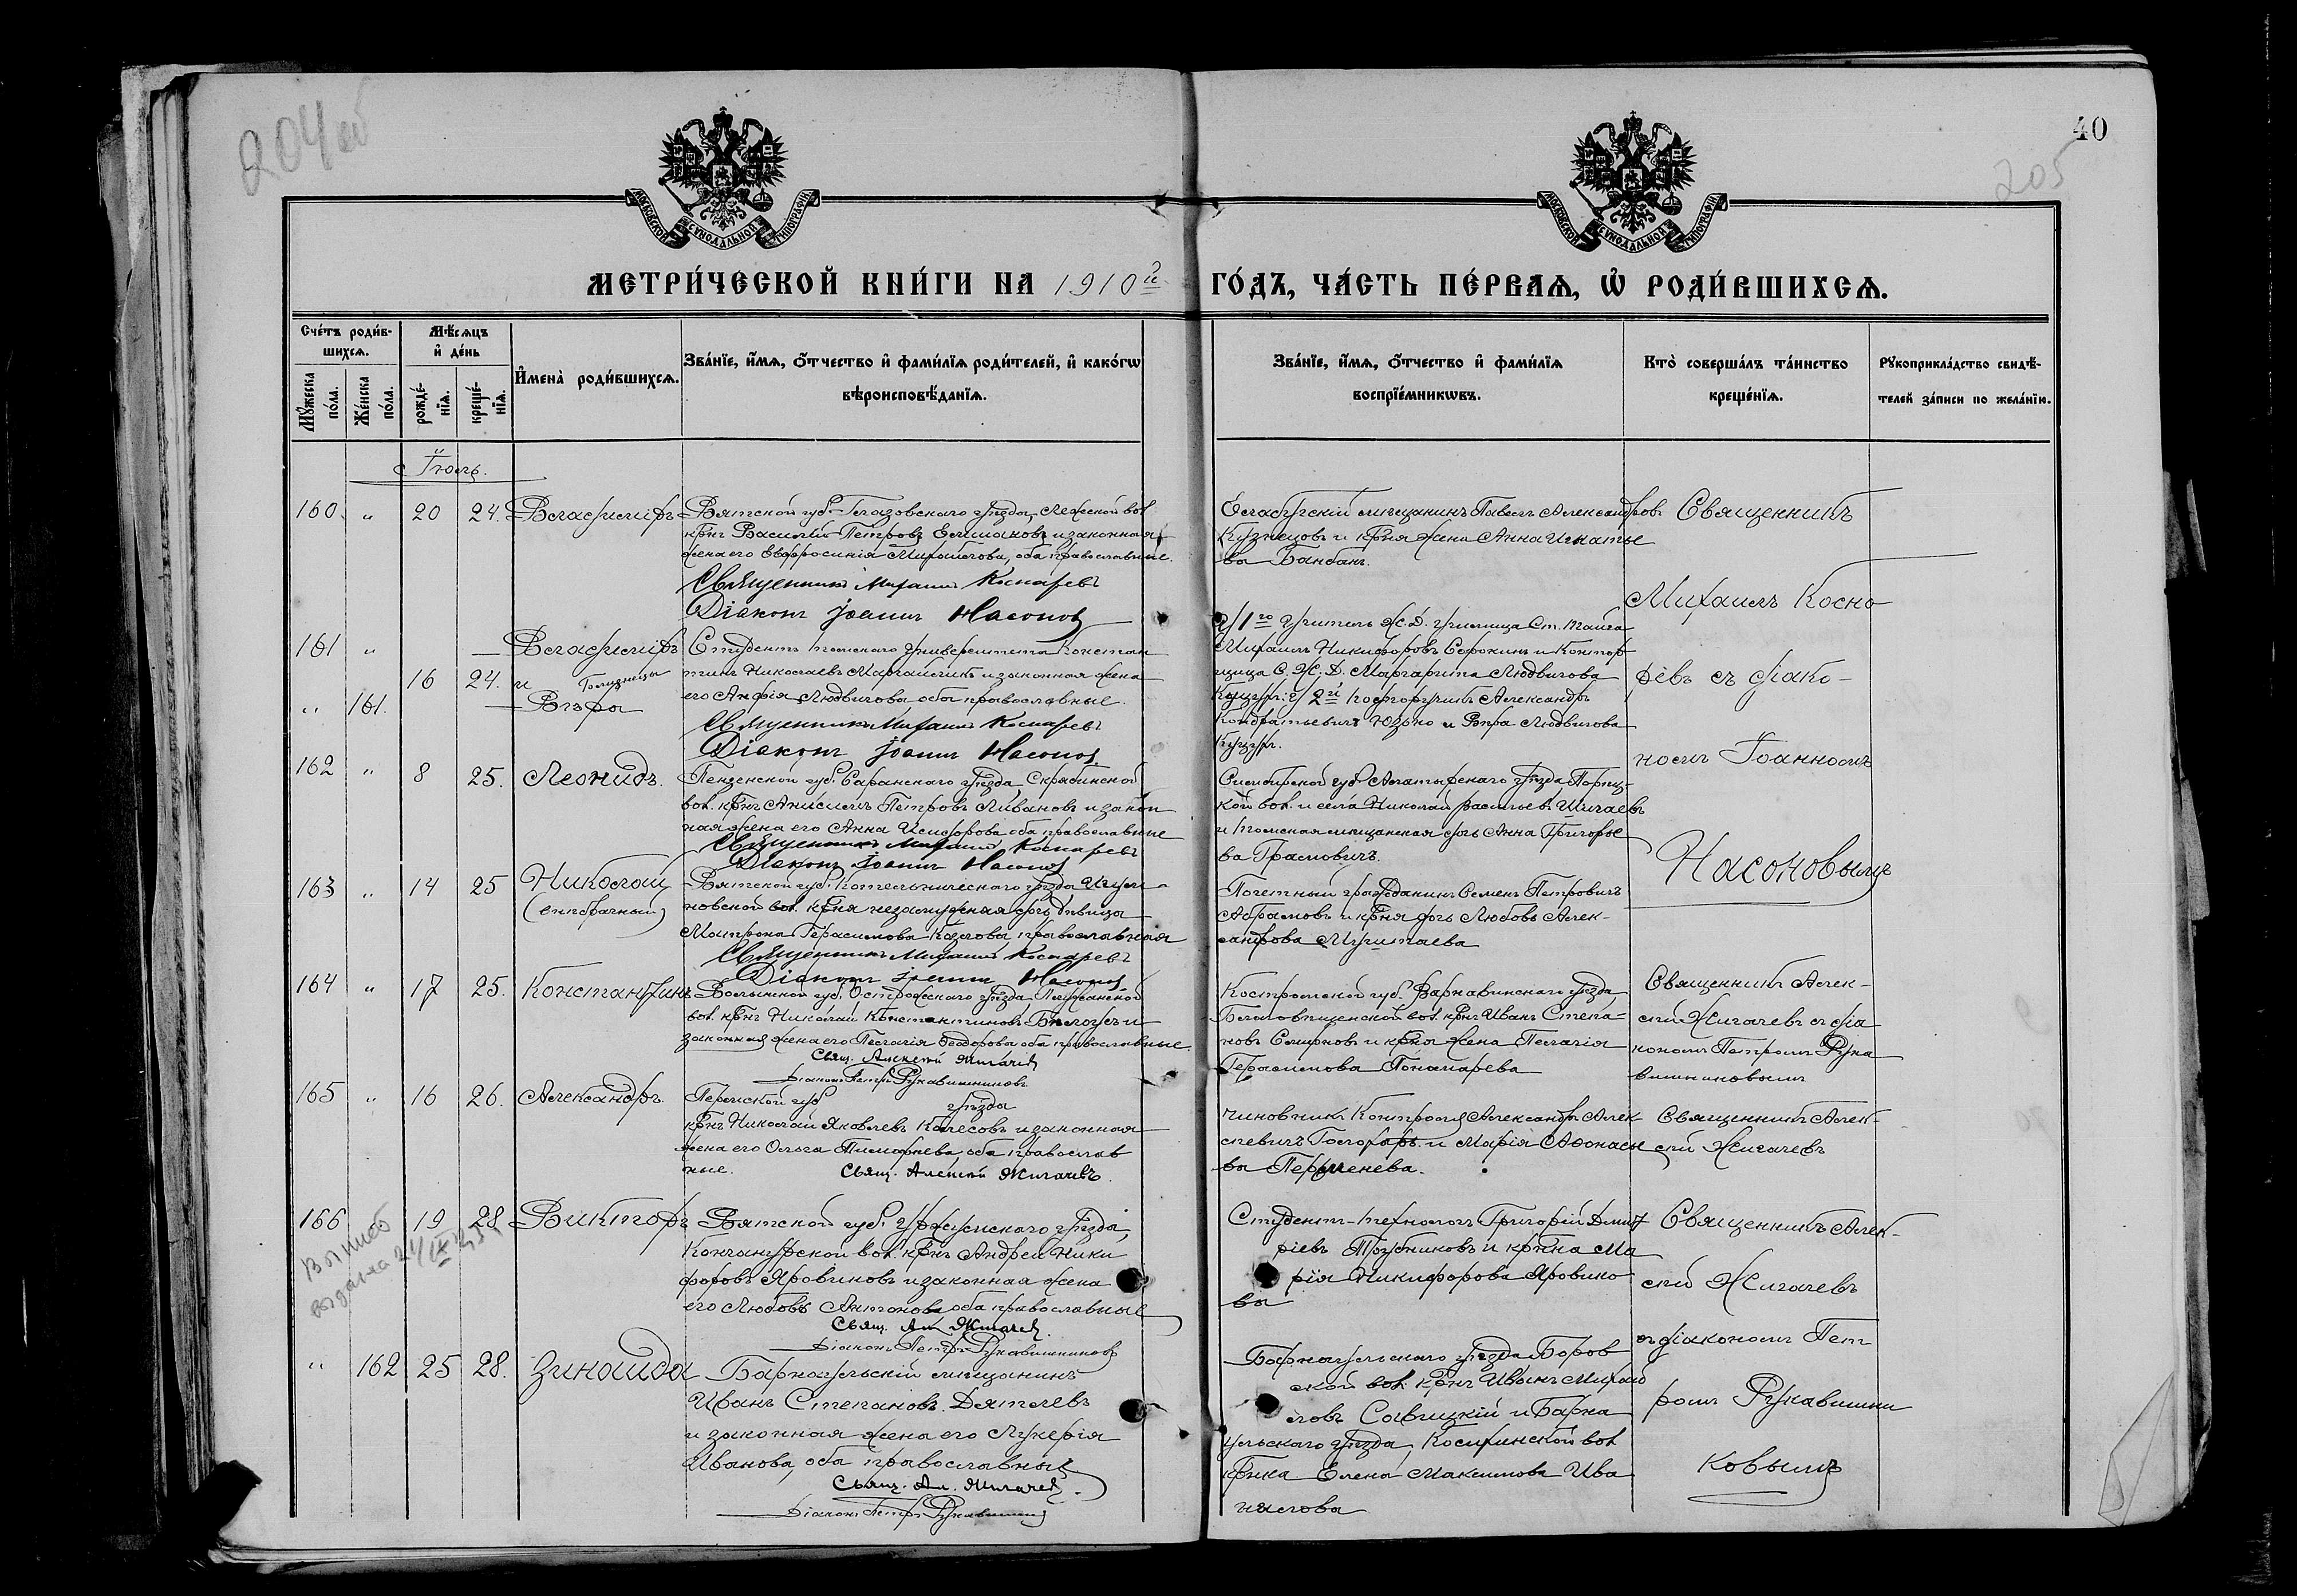 204 об
40
205
МОСКОВСКОЙ СѴНОДАЛЬНОЙ ТИПОГРАФІИ
МОСКОВСКОЙ СѴНОДАЛЬНОЙ ТИПОГРАФІИ
МЕТРИ́ЧЕСКОЙ КНИ́ГИ НА 1910й ГО́ДЪ, ЧА́СТЬ ПЕ́РВАѦ, Ѡ҆ РОДИ́ВШИХСѦ.
Сче́тъ роди́в-
шихсѧ.
Мꙋ́жеска по́ла.
Же́нска по́ла.
Мѣ́сѧцъ
и҆ де́нь
рожде́-
нїѧ.
креще́-
нїѧ.
И҆мена̀ роди́вшихсѧ.
Зва́нїе, и҆́мѧ, ѻ҆́тчество и҆ фами́лїѧ роди́телей, и҆ како́гѡ
вѣроисповѣ́данїѧ.
Зва́нїе, и҆́мѧ, ѻ҆́тчество и҆ фами́лїѧ
воспрїе́мникѡвъ.
Кто̀ соверша́лъ та́инство
креще́нїѧ.
Рꙋкоприкла́дство свидѣ́-
телей за́писи по жела́нїю.
Іюль.
160. " 20 24. Владиміръ
Вятской губ. Глазовскаго уѣзда, Лежской вол.
крнъ Василій Петровъ Ельшаковъ и законная
жена его Евфросинія Михайлова, оба православные.
Священникъ Михаилъ Коснаревъ
Діаконъ Іоаннъ Насонов
Елабужскій мѣщанинъ Павелъ Александров
Кузнецовъ и крня жена Анна Игнатье
ва Банбанъ.
Священникъ
Михаилъ Косно
ревъ съ діако-
номъ Іоанномъ
Насоновымъ
161 " — Владиміръ
16 24. и близнецы
" 161. — Вѣра
Студентъ Томскаго Университета Констан
тинъ Николаевъ и законная жена
его Людвигова оба православные.
Священникъ Михаилъ Коснаревъ
Діаконъ Іоаннъ Насонов
у 1го учитель Ж.Д. училища Ст. Тайга
Михаилъ Никифоровъ Сорокинъ и Контор
щица С. Ж. Д. Маргарита Людвигова
у 2й подпоручикъ Александръ
Кондратьевичъ и Вѣра Людвигова
162 " 8 25. Леонидъ.
Пензенской губ. Саранскаго уѣзда, Скрябинской
вол. крнъ Анисимъ Петровъ Ливановъ и закон
ная жена его Анна Исидорова оба православные
Священникъ Михаилъ Коснаревъ
Діаконъ Іоаннъ Насонов
Симбирской губ. Алатырскаго уѣзда, Порец-
кой вол. и села Николай Васильевъ Шигаевъ
и Томская мѣщанская дочь Анна Григорье
ва Грамовичъ.
163 " 14 25 Николай
(внѣбрачный)
Вятской губ. Котельническаго уѣзда
новской вол. крня незамужняя дочь дѣвица
Матрона Герасимова Козлова, православная
Священникъ Михаилъ Коснаревъ
Діаконъ Іоаннъ Насонов
Почетный гражданинъ Семенъ Петровичъ
Абрамовъ и крня дочь Любовь Алек-
сандрова
164 " 17 25. Константинъ
Волынской губ. Острожскаго уѣзда, Плужанской
вол. крнъ Николай Константиновъ и
законная жена его Пелагія Ѳеодорова оба православные.
Свящ. Алексѣй Жигачевъ
Діаконъ Петръ Рукавишниковъ
Костромской губ. Варнавинскаго уѣзда,
Благовѣщенской вол. крнъ Иванъ Степа-
новъ Смирновъ и крня жена Пелагія
Герасимова Пономарева
Священникъ Алек-
сѣй Жигачевъ съ діа
кономъ Петромъ Рука
вишниковымъ
165 " 16 26. Александръ.
Пермской губ уѣзда
крнъ Николай Яковлевъ Колесовъ и законная
жена его Ольга Тимофѣева, оба православ
ные. Свящ. Алексѣй Жигачевъ.
Чиновникъ Контроля Александръ Алек
сѣевичъ и Марія Аѳонасье
ва Перменева.
Священникъ Алек-
сѣй Жигачевъ
166 19 28 Викторъ
выдана 24/IX
Вятской губ. Уржумскаго уѣзда,
Кичминской вол. крнъ Андрей Ники
форовъ Яровиковъ и законная жена
его Любовь Антонова оба православные
Свящ. Ал Жигачевъ.
Діаконъ Петръ Рукавишниковъ
Студентъ-технологъ Григорій Дмит
ріевъ Трубниковъ и крнка Ма
рія Никифорова Яровико
ва
Священникъ Алек-
сѣй Жигачевъ
съ діакономъ Пет
ромъ Рукавишни
ковымъ
" 162 25 28. Зинаида
Барнаульскій мѣщанинъ
Иванъ Степановъ Дятлевъ
и законная жена его Лукерія
Иванова, оба православные
Свящ. Ал. Жигачевъ.
Діаконъ Петръ Рукавишник
Барнаульскаго уѣзда Боров
ской вол. крнъ Иванъ Михай
ловъ Савицкій и Барна
ульскаго уѣзда, Косихинской вол
крнка Елена Максимова Ива